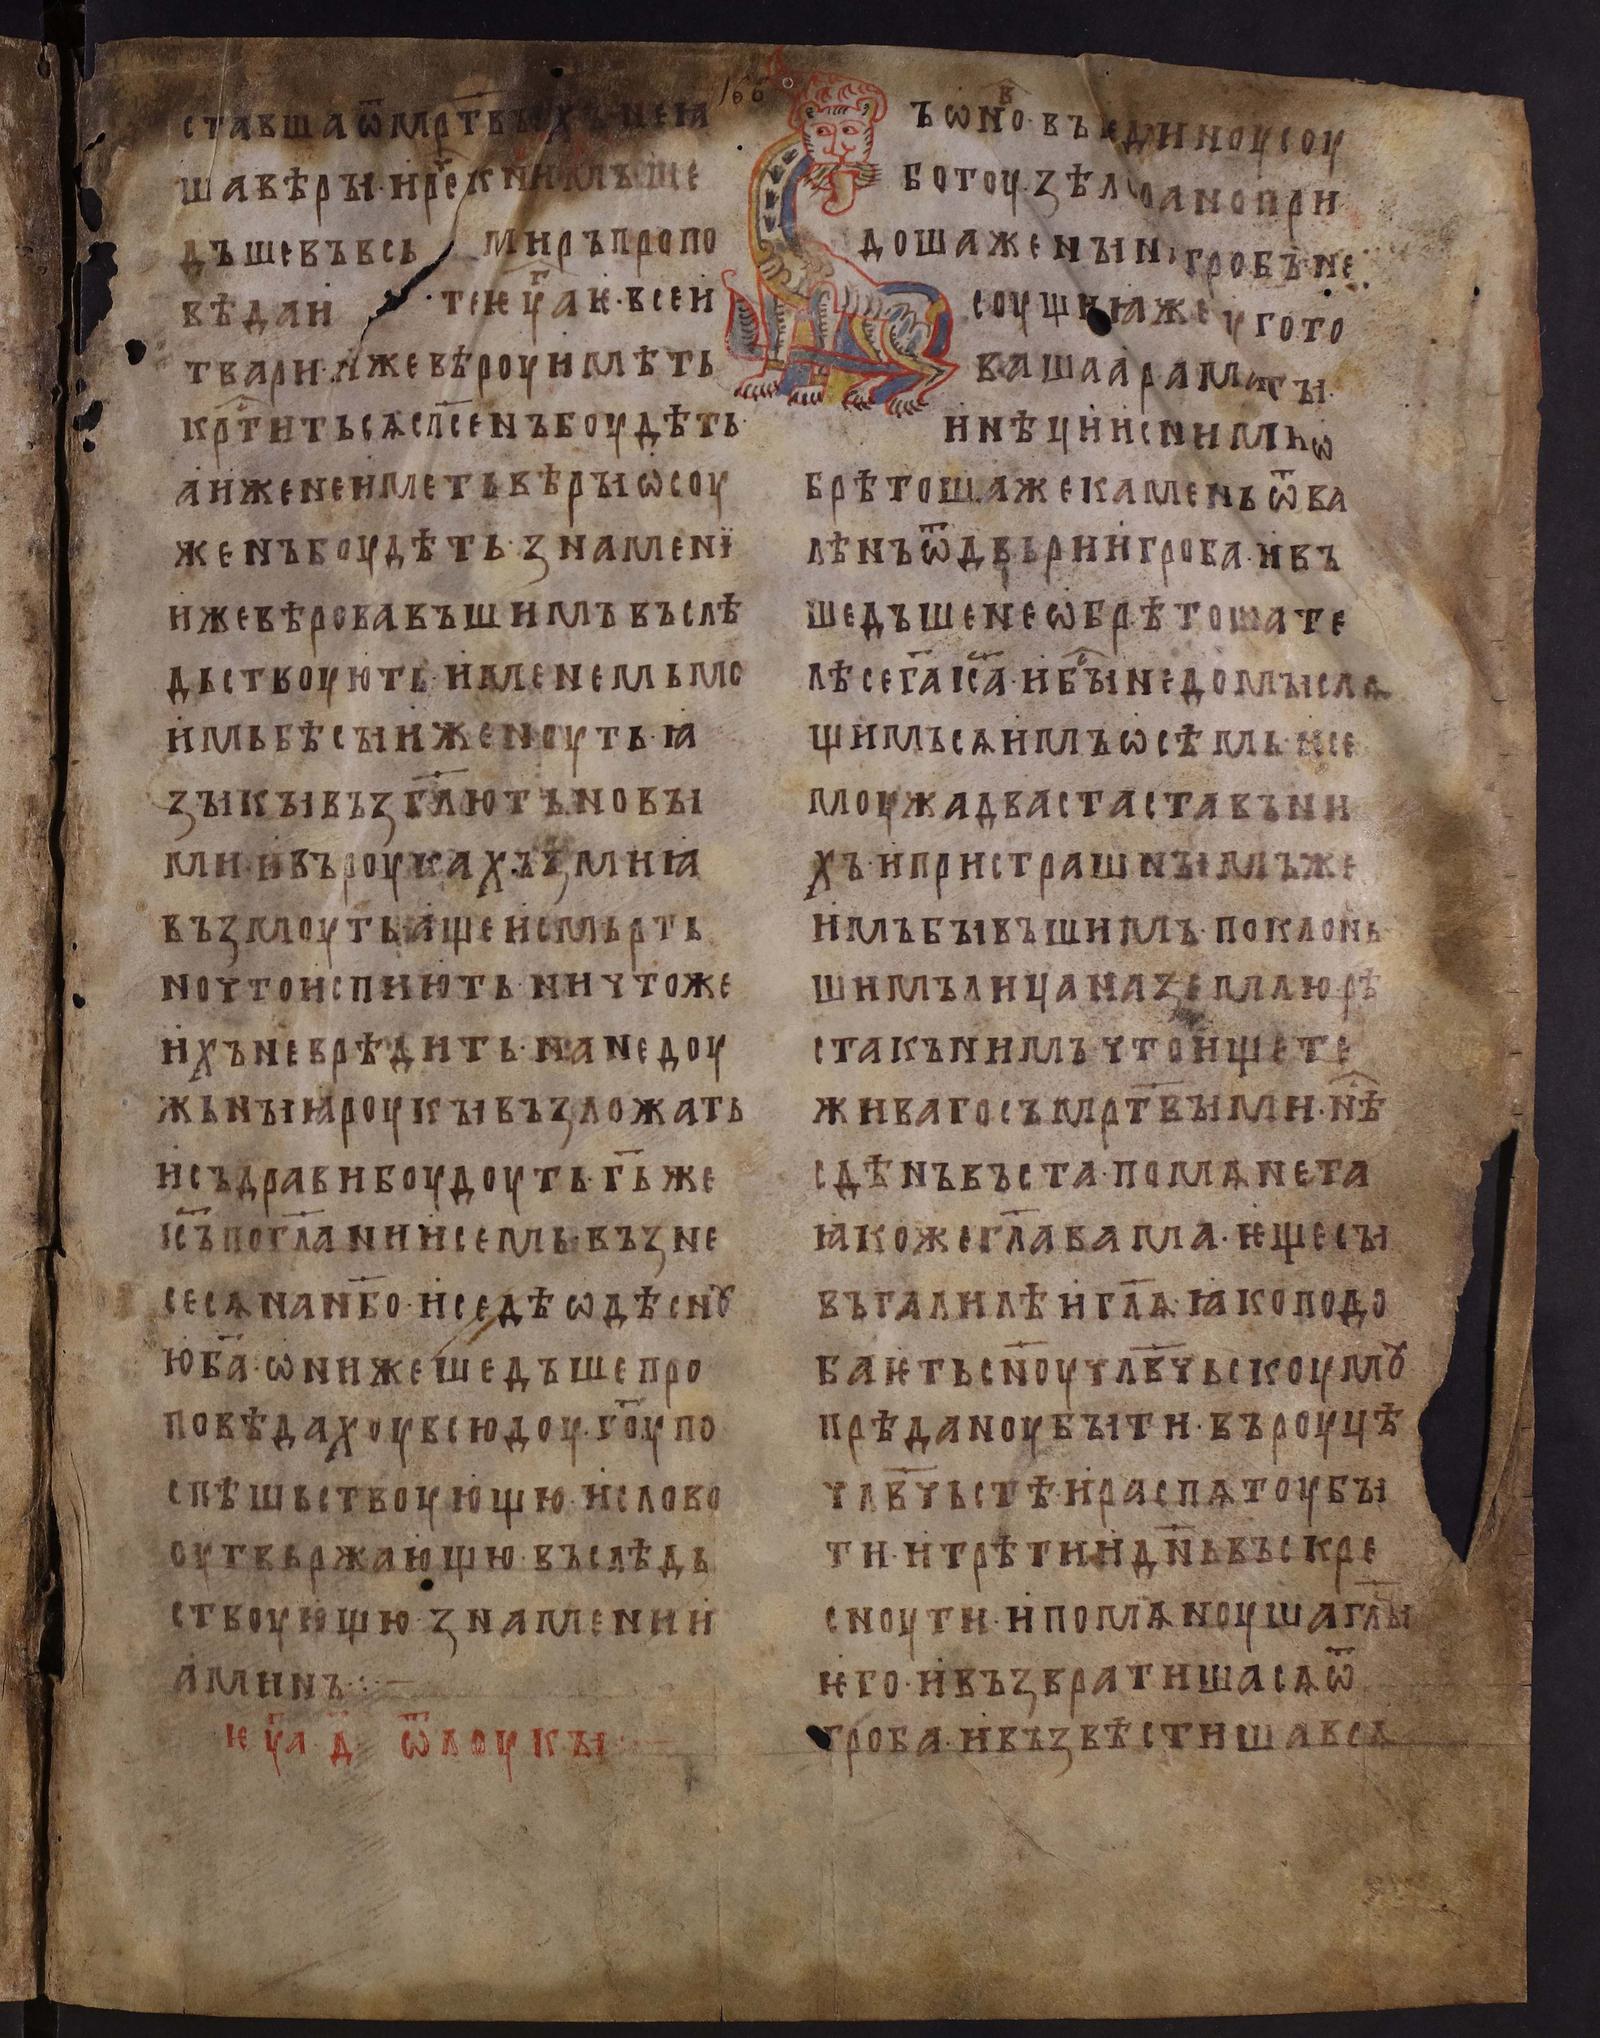 166
ставшаѿмр҃твыхънеꙗ
шавѣры·ирⷱ҇екнимъше
дъшевъвсь мнръпропо
вѣдаи теѥⷢ҇уак·всеи
твари·ижевѣроуимѣть
кр҃титьсѧсп҃сенъбоудѣть·
анженеиметьвѣрыѡсоу
женъбоудѣть·знамені
ижевѣровавъшимъвъслѣ
дьствоують·именемьмо
имьбѣсыиженоуть·ꙗ
зыкывъзгл҃ютьновы
ми·ивъроукахъзмиꙗ
възмоутьащеисмьрть
ноутоиспиють·ничтоже
ихъневрѣдить·нанедоу
жьныꙗроукывъзложать
исъдравибоудоуть·г҃ьже
іс҃ъпогл҃анииисемь·възне
сесѧнаⷩ҇нб҃о·исѣдѣѡдѣснꙋ
юб҃а·ѡнижешедъшепро
повѣдахоувсюдоу·г҃оупо
спѣшьствоующю·ислово
оутвьржающю·въслѣдь
ствоующю·знамении
аминъ:·—
ѥуⷢ҇л·д҃·ѿлоукы:·—
ъѡноⷡ҇·въѥдиноусоу
ботоу·зѣлоранопри
дошаженынагробъне
соущиꙗжеуготo
вашаараматы·
инѣциисниміѡ
брѣтошажекаменьѿва
лѣнъѿдвьриигроба·ивъ
шедъшенеѡбрѣтошате
лѣсег҃аіс҃а·иб҃ынедомысла
щимъсѧимъѡсѣмь·исе
моужадвастаставъни
хъ·ипристрашнымъже
имъбывъшимъ·поклонь
шимълицаназемлюрѣ
стакънимъчтоищете
живагосъмр҃твыми·нѣ
сдѣнъвъста·помѧнета
ꙗкожегл҃авама·ѥщесы
въгалилѣигл҃ѧ·ꙗкоподо
баѥтьсн҃оучл҃вчьскоумꙋ
прѣданоубыти·въроуцѣ
чл҃вчьстѣираспѧтоубы
ти·итрѣтиидн҃ьвъскре
сноути·ипомѧноушагл҃ы
ѥго·ивъзвратишасѧѿ
гроба·ивъзвѣстишавсѧ